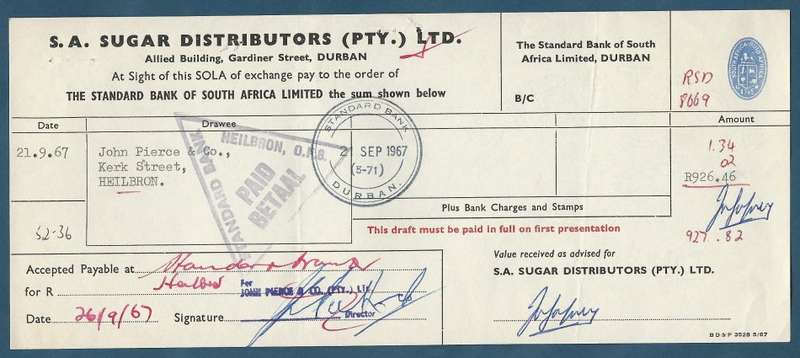 S.A. SUGAR DISTRIBUTORS (PTY.) LTD.
Allied Building, Gardiner Street, DURBAN
At Sight of this SOLA of exchange pay to the order of
THE STANDARD BANK OF SOUTH AFRICA LIMITED the sum shown below
The Standard Bank of South
Africa Limited, DURBAN
B/C
RSD
8669
Date
Drawee
Amount
21.9.67
John Pierce & Co.,
Kerk Street,
HEILBRON.
STANDARD BANK
HEILBRON, O.F.S.
PAID
BETAAL
STANDARD BANK
21 SEP 1967
(5-71)
DURBAN.
1.34
02
R926.46
Plus Bank Charges and Stamps
927.82
52-36
This draft must be paid in full on first presentation
Accepted Payable at Standard
for R Heilbron
For
JOHN PIERCE & CO. (PTY.) Ltd.
Director
Date 26/9/67 Signature
Value received as advised for
S.A. SUGAR DISTRIBUTORS (PTY.) LTD.
BDSP 3028 5/67